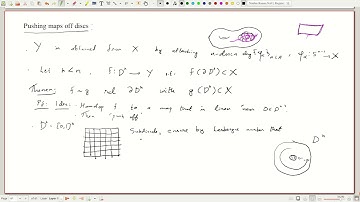 Pushing maps off discs
Y is obtained from X by attaching n-discs {φα}α∈Λ, φα: Sⁿ⁻¹ → X
Let k < n, f: Dᵏ → Y s.t. f(∂Dᵏ) ⊂ X
Theorem: f ~ g rel ∂Dᵏ with g(Dᵏ) ⊂ X
Pf: Idea: Homotop f to a map that is linear near 0 ∈ Dⁿ
Then "push off"
Dᵏ = [0,1]ᵏ
Subdivide, ensure by Lebesgue number that
Dⁿ